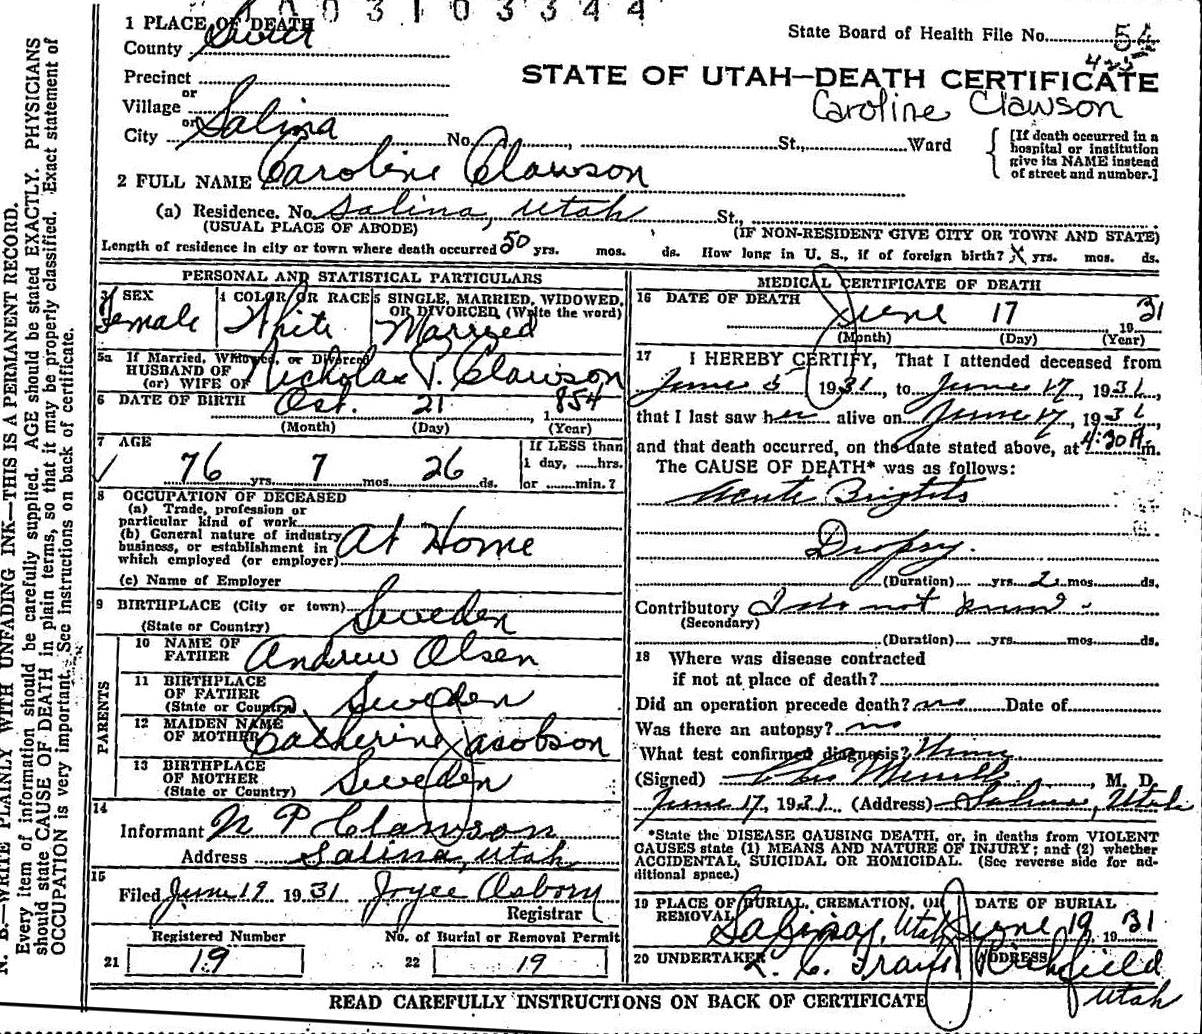 0 3 1 0 3 3 4 4
1 PLACE OF DEATH
State Board of Health File No. 54
County Sevier
425
Precinct
STATE OF UTAH—DEATH CERTIFICATE
or
Village
Caroline Clawson
or
City Salina No. , St., Ward
[If death occurred in a
hospital or institution
give its NAME instead
of street and number.]
2 FULL NAME Caroline Clawson
(a) Residence. No. Salina, Utah St.,
(USUAL PLACE OF ABODE) (IF NON-RESIDENT GIVE CITY OR TOWN AND STATE)
Length of residence in city or town where death occurred 50 yrs. mos. ds. How long in U. S., if of foreign birth? X yrs. mos. ds.
PERSONAL AND STATISTICAL PARTICULARS
3 SEX
Female
4 COLOR OR RACE
White
5 SINGLE, MARRIED, WIDOWED,
OR DIVORCED (Write the word)
Married
5a If Married, Widowed, or Divorced
HUSBAND OF
(or) WIFE OF Nicholas P. Clawson
6 DATE OF BIRTH Oct. 21 1854
(Month) (Day) (Year)
7 AGE
76 yrs. 7 mos. 26 ds.
If LESS than
1 day, ......hrs.
or .......min.?
8 OCCUPATION OF DECEASED
(a) Trade, profession or
particular kind of work
(b) General nature of industry
business, or establishment in
which employed (or employer) At Home
(c) Name of Employer
9 BIRTHPLACE (City or town)
(State or Country) Sweden
PARENTS
10 NAME OF
FATHER Andrew Olsen
11 BIRTHPLACE
OF FATHER
(State or Country) Sweden
12 MAIDEN NAME
OF MOTHER Catherine Jacobson
13 BIRTHPLACE
OF MOTHER
(State or Country) Sweden
14
Informant N P Clawson
Address Salina, Utah
15
Filed June 19 1931 Joyce Osborn
Registrar
Registered Number No. of Burial or Removal Permit
21 19 22 19
MEDICAL CERTIFICATE OF DEATH
16 DATE OF DEATH
June 17 1931
(Month) (Day) (Year)
17 I HEREBY CERTIFY, That I attended deceased from
June 5 1931, to June 17, 1931,
that I last saw her alive on June 17, 1931
and that death occurred, on the date stated above, at 4:30 A.m.
The CAUSE OF DEATH* was as follows:
Acute Brights
Dropsy.
(Duration) yrs. 2 mos. ds.
Contributory I do not know -
(Secondary)
(Duration) yrs. mos. ds.
18 Where was disease contracted
if not at place of death?
Did an operation precede death? no Date of
Was there an autopsy? no
What test confirmed diagnosis?
(Signed) M. D.
June 17, 1931 (Address) Salina, Utah
*State the DISEASE CAUSING DEATH, or, in deaths from VIOLENT
CAUSES state (1) MEANS AND NATURE OF INJURY; and (2) whether
ACCIDENTAL, SUICIDAL OR HOMICIDAL. (See reverse side for ad-
ditional space.)
19 PLACE OF BURIAL, CREMATION, OR DATE OF BURIAL
REMOVAL Salina, Utah June 19 1931
20 UNDERTAKER ADDRESS
Richfield
Utah
READ CAREFULLY INSTRUCTIONS ON BACK OF CERTIFICATE
N. B.—WRITE PLAINLY WITH UNFADING INK—THIS IS A PERMANENT RECORD.
Every item of information should be carefully supplied. AGE should be stated EXACTLY. PHYSICIANS
should state CAUSE OF DEATH in plain terms, so that it may be properly classified. Exact statement of
OCCUPATION is very important. See instructions on back of certificate.